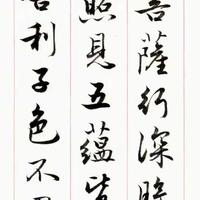 菩薩行深時
照見五蘊皆
舍利子色不